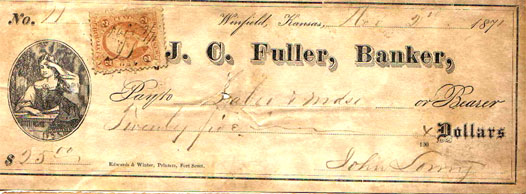 No. 11 Winfield, Kansas, Nov 2 1871
J. C. Fuller, Banker,
Pay to or Bearer
Twenty five Dollars
$ 25.00 Edwards & Winter, Printers, Fort Scott. John